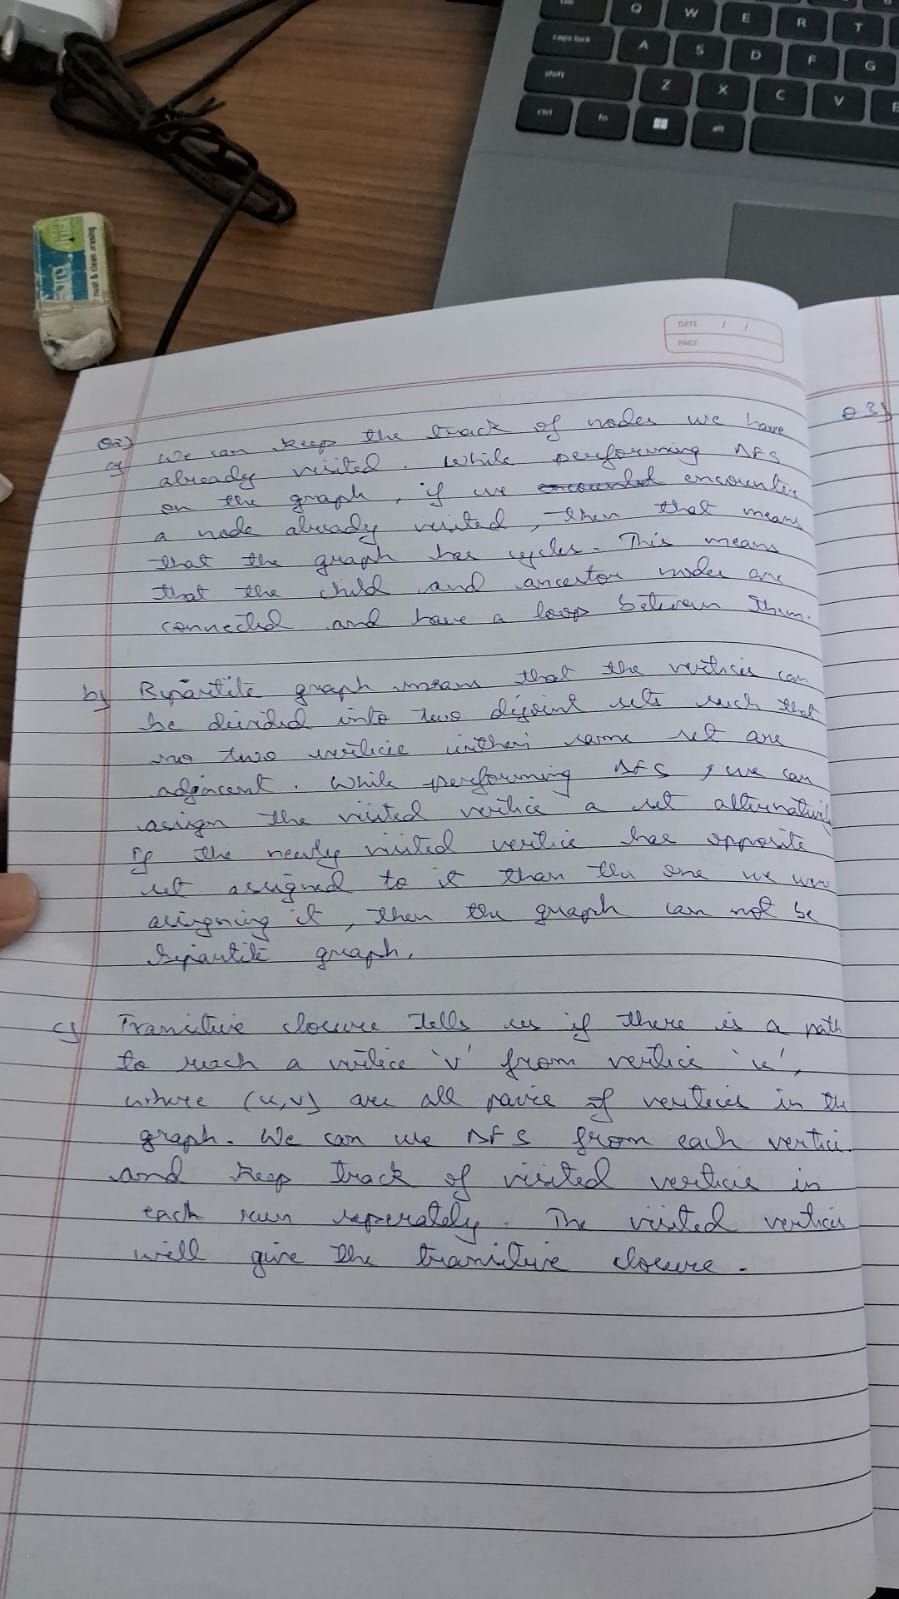 Q W E R T
caps lock A S D F G
shift Z X C V
ctrl fn alt
dust & clean erasing
DATE / /
PAGE
Q2)
Q3)
a) We can keep the track of nodes we have
already visited. While performing DFS
on the graph, if we encounted encounter
a node already visited, then that means
that the graph has cycles. This means
that the child and ancestor nodes are
connected and have a loop between them.
b) Bipartite graph means that the verticis can
be divided into two disjoint sets such that
no two verticie within same set are
adjacent. While performing DFS, we can
assign the visited vertice a set alternatively
If the newly visited vertice has opposite
set assigned to it than the one we were
assigning it, then the graph can not be
bipartite graph.
c) Transitive closure tells us if there is a path
to reach a vertice 'v' from vertice 'u',
where (u,v) are all pairs of vertices in the
graph. We can use DFS from each vertici
and keep track of visited verticies in
each run seperately. The visited verticis
will give the transitive closure.